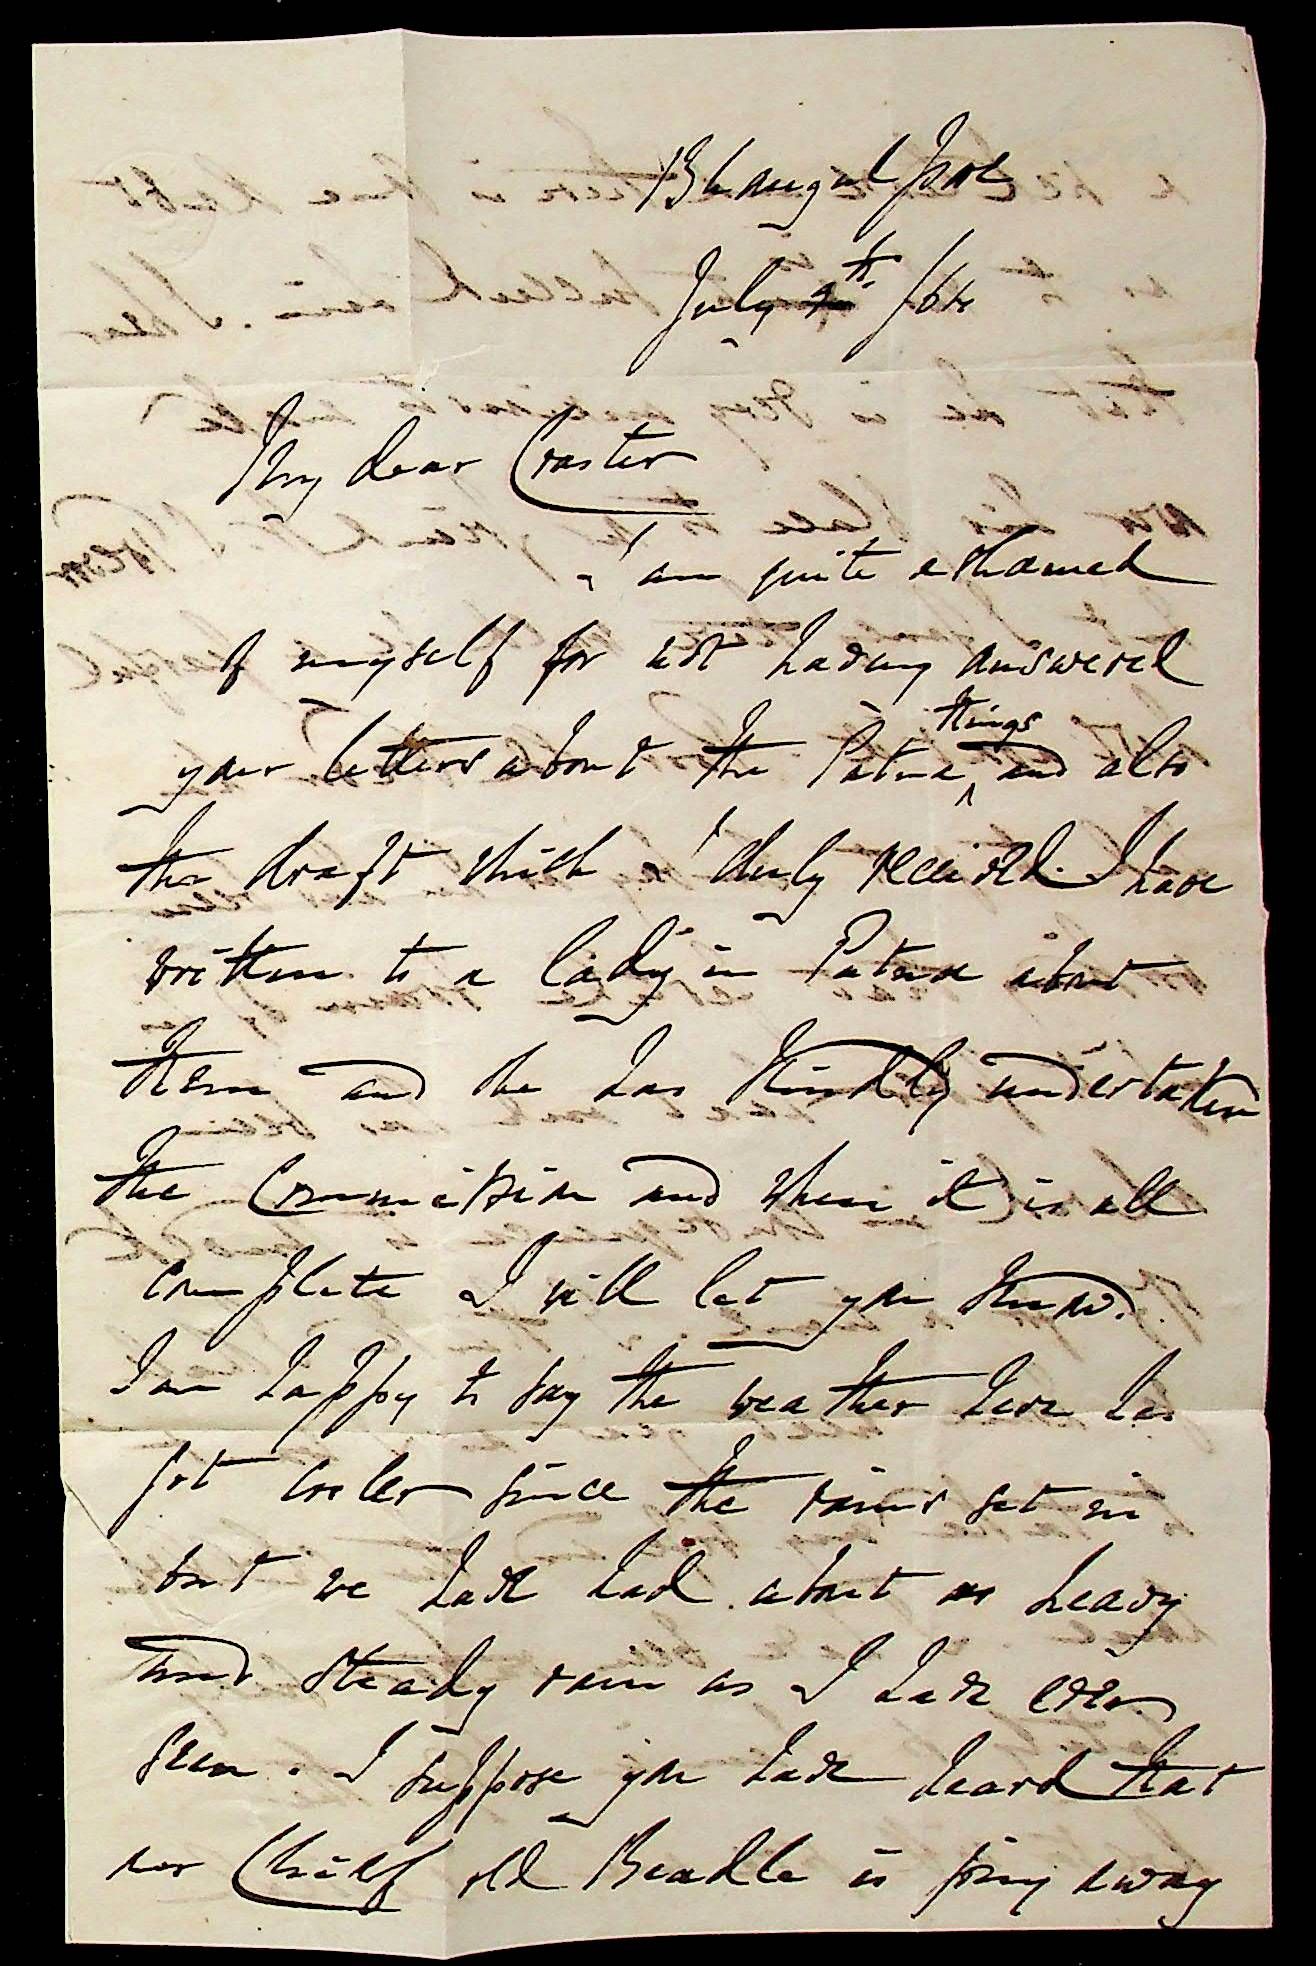 Bhaugulpore
July 9th /64
My dear Craster
I am quite ashamed
of myself for not having answered
your letters about the Patna things and also
the draft which I duly received. I have
written to a lady in Patna about
them and she has kindly undertaken
the Commission and when it is all
complete I will let you know.
I am happy to say the weather here has
got cooler since the rains set in
but we have had about as heavy
and steady rain as I have ever
seen. I suppose you have heard that
our Chief old Beadle is going away